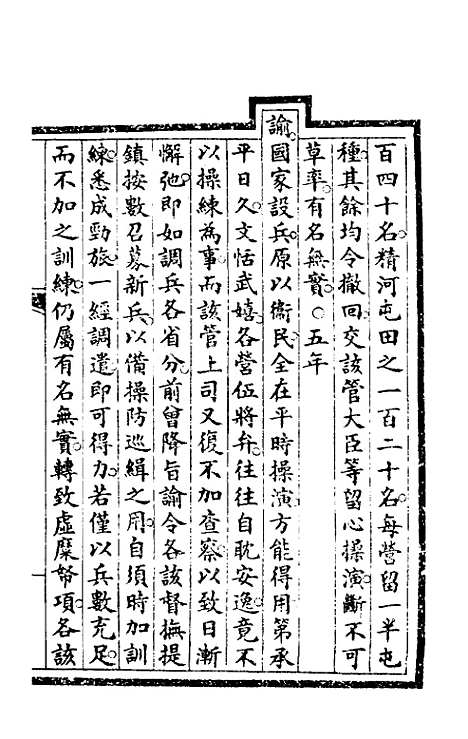 百四十名。精河屯田之一百二十名。每營留一半屯
種。其餘均令撤回。交該管大臣等留心操演。斷不可
草率。有名無實。○五年
諭。國家設兵。原以衞民。全在平時操演。方能得用。第承
平日久。文恬武嬉。各營伍將弁。往往自耽安逸。竟不
以操練為事。而該管上司。又復不加查察。以致日漸
懈弛。即如調兵各省分。前曾降旨。諭令各該督撫提
鎮。按數召募新兵。以備操防巡緝之用。自須時加訓
練。悉成勁旅。一經調遣。即可得力。若僅以兵數充足。
而不加之訓練。仍屬有名無實。轉致虛糜帑項。各該